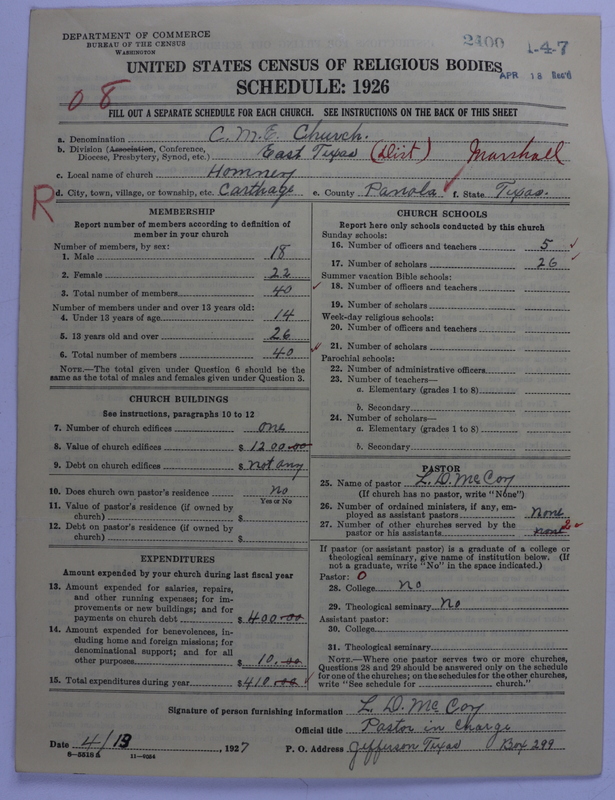 DEPARTMENT OF COMMERCE
BUREAU OF THE CENSUS
WASHINGTON
2400 1-4-7
UNITED STATES CENSUS OF RELIGIOUS BODIES
APR 18 Rec'd
SCHEDULE: 1926
08
FILL OUT A SEPARATE SCHEDULE FOR EACH CHURCH. SEE INSTRUCTIONS ON THE BACK OF THIS SHEET
a. Denomination C. M. E. Church.
b. Division (Association, Conference, Diocese, Presbytery, Synod, etc.) East Texas (Dist) Marshall
c. Local name of church
R
d. City, town, village, or township, etc. Carthage e. County Panola f. State Texas.
MEMBERSHIP
Report number of members according to definition of
member in your church
Number of members, by sex:
1. Male 18
2. Female 22
3. Total number of members 40
Number of members under and over 13 years old:
4. Under 13 years of age 14
5. 13 years old and over 26
6. Total number of members 40
NOTE.—The total given under Question 6 should be
same as the total of males and females given under Question 3.
CHURCH BUILDINGS
See instructions, paragraphs 10 to 12
7. Number of church edifices one
8. Value of church edifices $ 1200.00
9. Debt on church edifices $ not any
10. Does church own pastor's residence no
Yes or No
11. Value of pastor's residence (if owned by
church) $
12. Debt on pastor's residence (if owned by
church) $
EXPENDITURES
Amount expended by your church during last fiscal year
13. Amount expended for salaries, repairs,
and other running expenses; for im-
provements or new buildings; and for
payments on church debt $ 400.00
14. Amount expended for benevolences, in-
cluding home and foreign missions; for
denominational support; and for all
other purposes $ 10.00
15. Total expenditures during year $ 410.00
CHURCH SCHOOLS
Report here only schools conducted by this church
Sunday schools:
16. Number of officers and teachers 5
17. Number of scholars 26
Summer vacation Bible schools:
18. Number of officers and teachers
19. Number of scholars
Week-day religious schools:
20. Number of officers and teachers
21. Number of scholars
Parochial schools:
22. Number of administrative officers
23. Number of teachers—
a. Elementary (grades 1 to 8)
b. Secondary
24. Number of scholars—
a. Elementary (grades 1 to 8)
b. Secondary
PASTOR
25. Name of pastor L. D. McCoy
(If church has no pastor, write "None")
26. Number of ordained ministers, if any, em-
ployed as assistant pastors none
27. Number of other churches served by the
pastor or his assistants none 2
If pastor (or assistant pastor) is a graduate of a college or
theological seminary, give name of institution below. (If
not a graduate, write "No" in the space indicated.)
Pastor: 0
28. College no
29. Theological seminary No
Assistant pastor:
30. College
31. Theological seminary
NOTE.—Where one pastor serves two or more churches,
Questions 28 and 29 should be answered only on the schedule
for one of the churches; on the schedules for the other churches,
write "See schedule for church."
Signature of person furnishing information L. D. McCoy
Official title Pastor in Charge
Date 4/13, 1927 P. O. Address Jefferson Texas Box 299
6—5516 A 11—9054